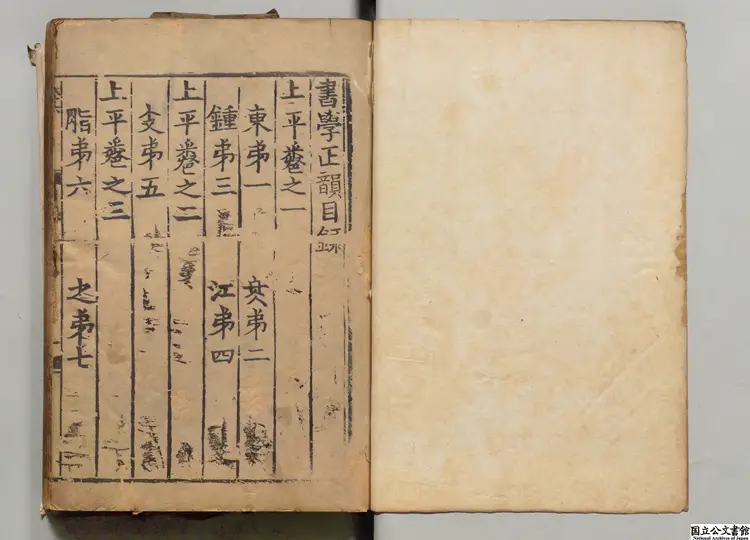 書學正韻目錄
上平卷之一
東弟一 冬弟二
鍾弟三 江弟四
上平卷之二
支弟五
上平卷之三
脂弟六 之弟七
国立公文書館
National Archives of Japan